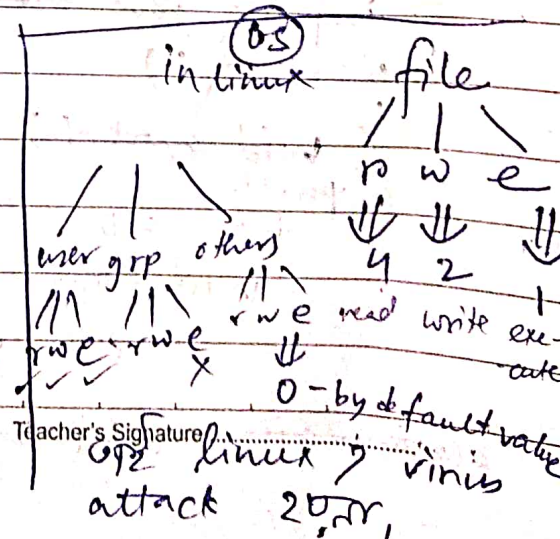 OS
in linux file
r w e
4 2 1
user grp others
r w e r w e r w e read write exe-
cute
0 - by default value
Teacher's Signature
linux virus
attack